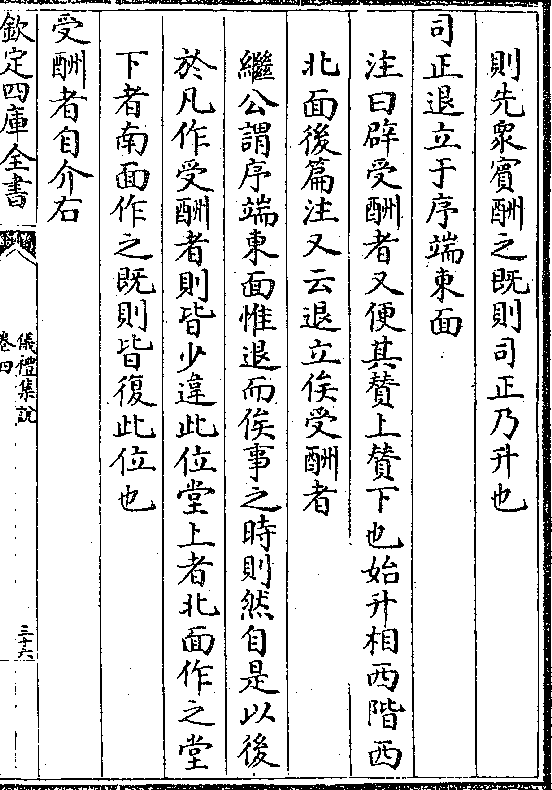 則先衆賓酬之既則司正乃升也
司正退立于序端東面
注曰辟受酬者又便其贊上贊下也始升相西階西
北面後篇注又云退立俟受酬者
繼公謂序端東面惟退而俟事之時則然自是以後
於凡作受酬者則皆少違此位堂上者北面作之堂
下者南面作之既則皆復此位也
受酬者自介右
欽定四庫全書
儀禮集說
卷四
三十六